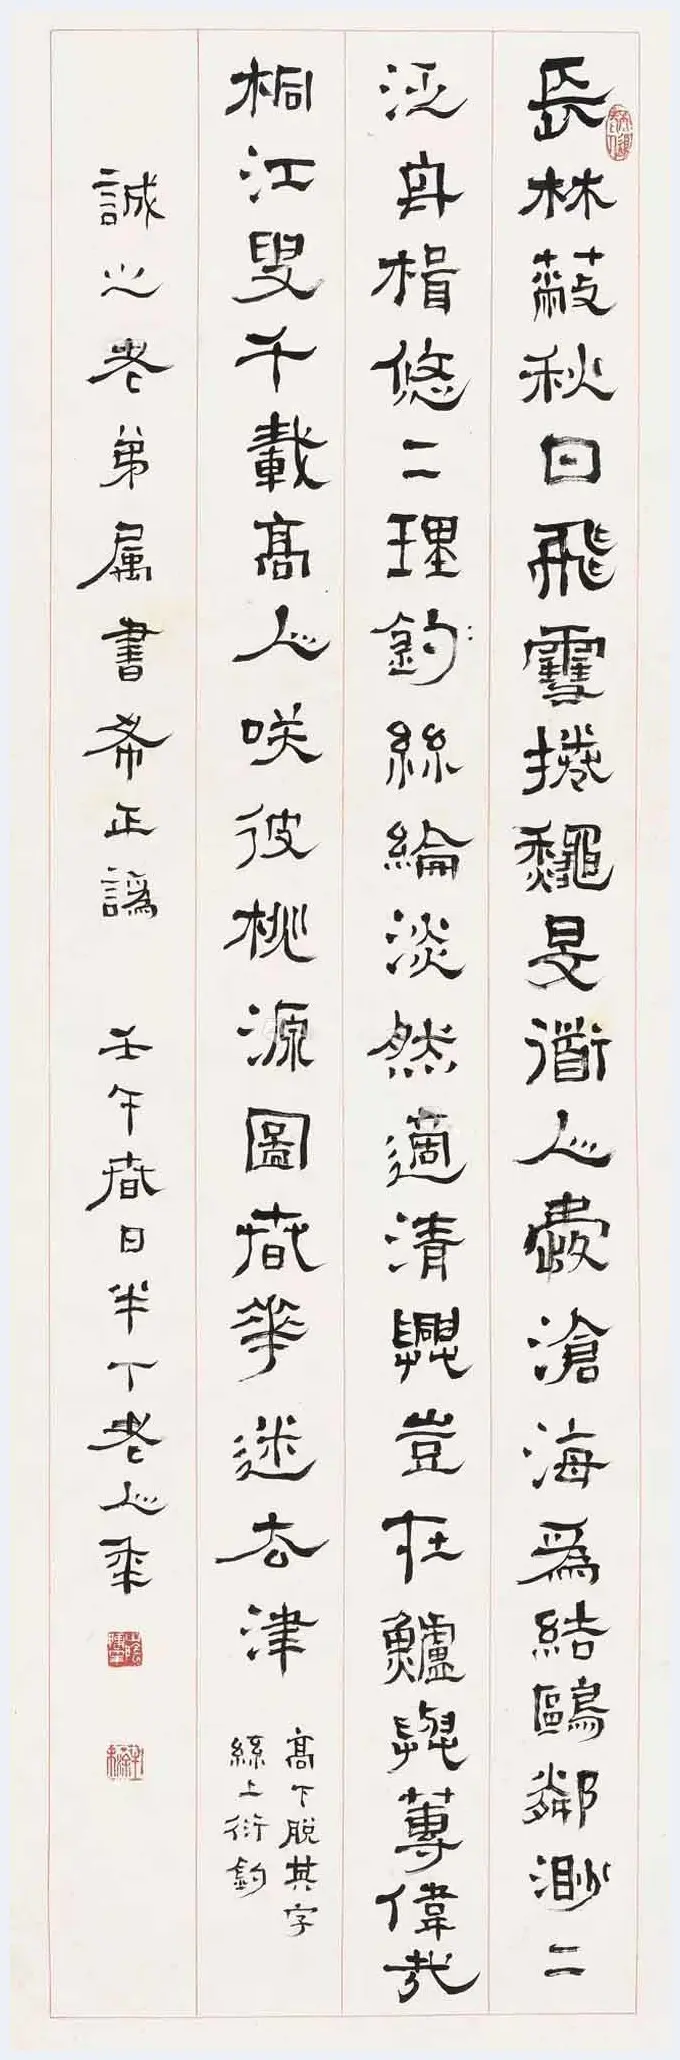 長林蔽秋日飛雪捲龝旻衟人滄海爲結鷗鄰渺二
泛舟楫悠二理釣絲綸淡然適清興豈在鱸與蓴偉哉
桐江叟千載高人咲彼桃源圖春華迷去津
高下脫其字
絲上衍釣
誠之老弟属書希正譌 壬午春日半丁老人年